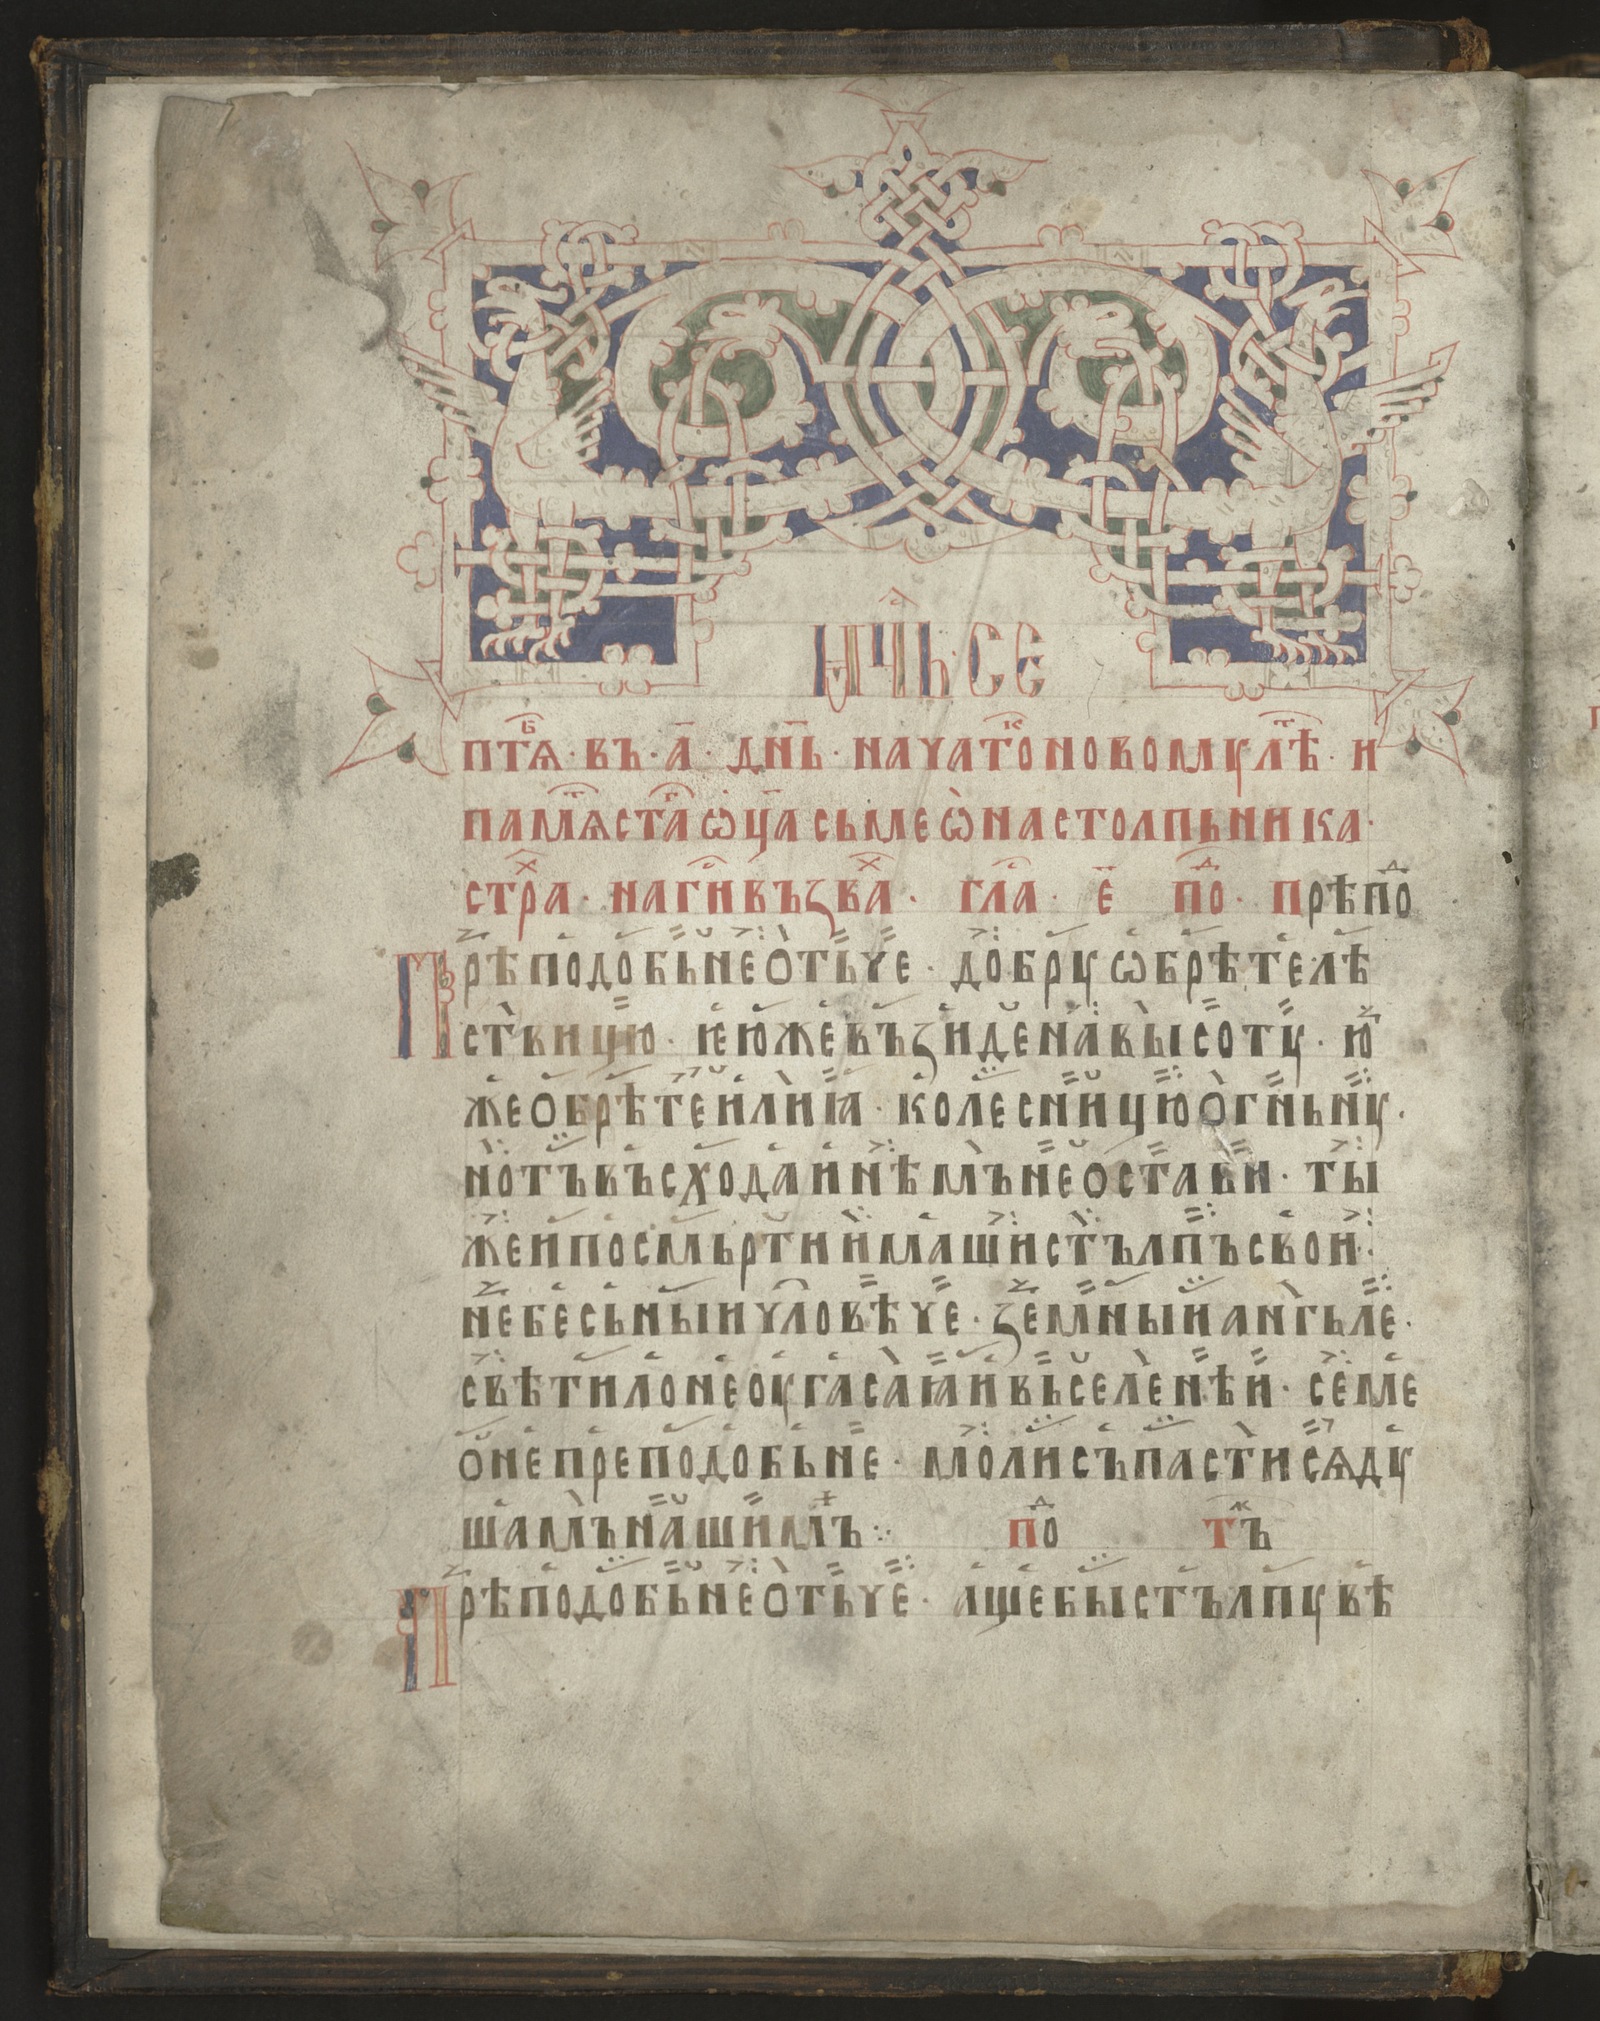 мⷭ҇чь·се
птⷠ҇ѧ·въ·а҃·дн҃ь·наꙋатⷦ҇оновомꙋлⷮ҇ѣ·и
памⷮ҇ѧстⷢ҇аѡц҃асьмеѡнастолпьника·
стрⷯ҇а·нагнⷭ҇въꙁвⷯ҇а·глⷭ҇а·е҃ пⷣ҇о·прѣпⷣ҇о
Прѣподобьнеотьче·добрꙋѡбрѣтелѣ
ствицю·ѥюжевъꙁиденавысотꙋ·ю
жеобрѣтеилиꙗ·колесницюогньнꙋ·
нотъвъсходаинѣмънеостави·ты
жеипосмьртиимашистълпъсвои·
небесьныичловѣче·ꙁемныиангьле·
свѣтилонеоугасаꙗивьселенѣи·семе
онепреподобьне·молисъпастисѧдꙋ
шамънашимъ⁘ пⷣ҇о тⷦ҇ъ
Прѣподобьнеотьче·ащебыстълпꙋвѣ